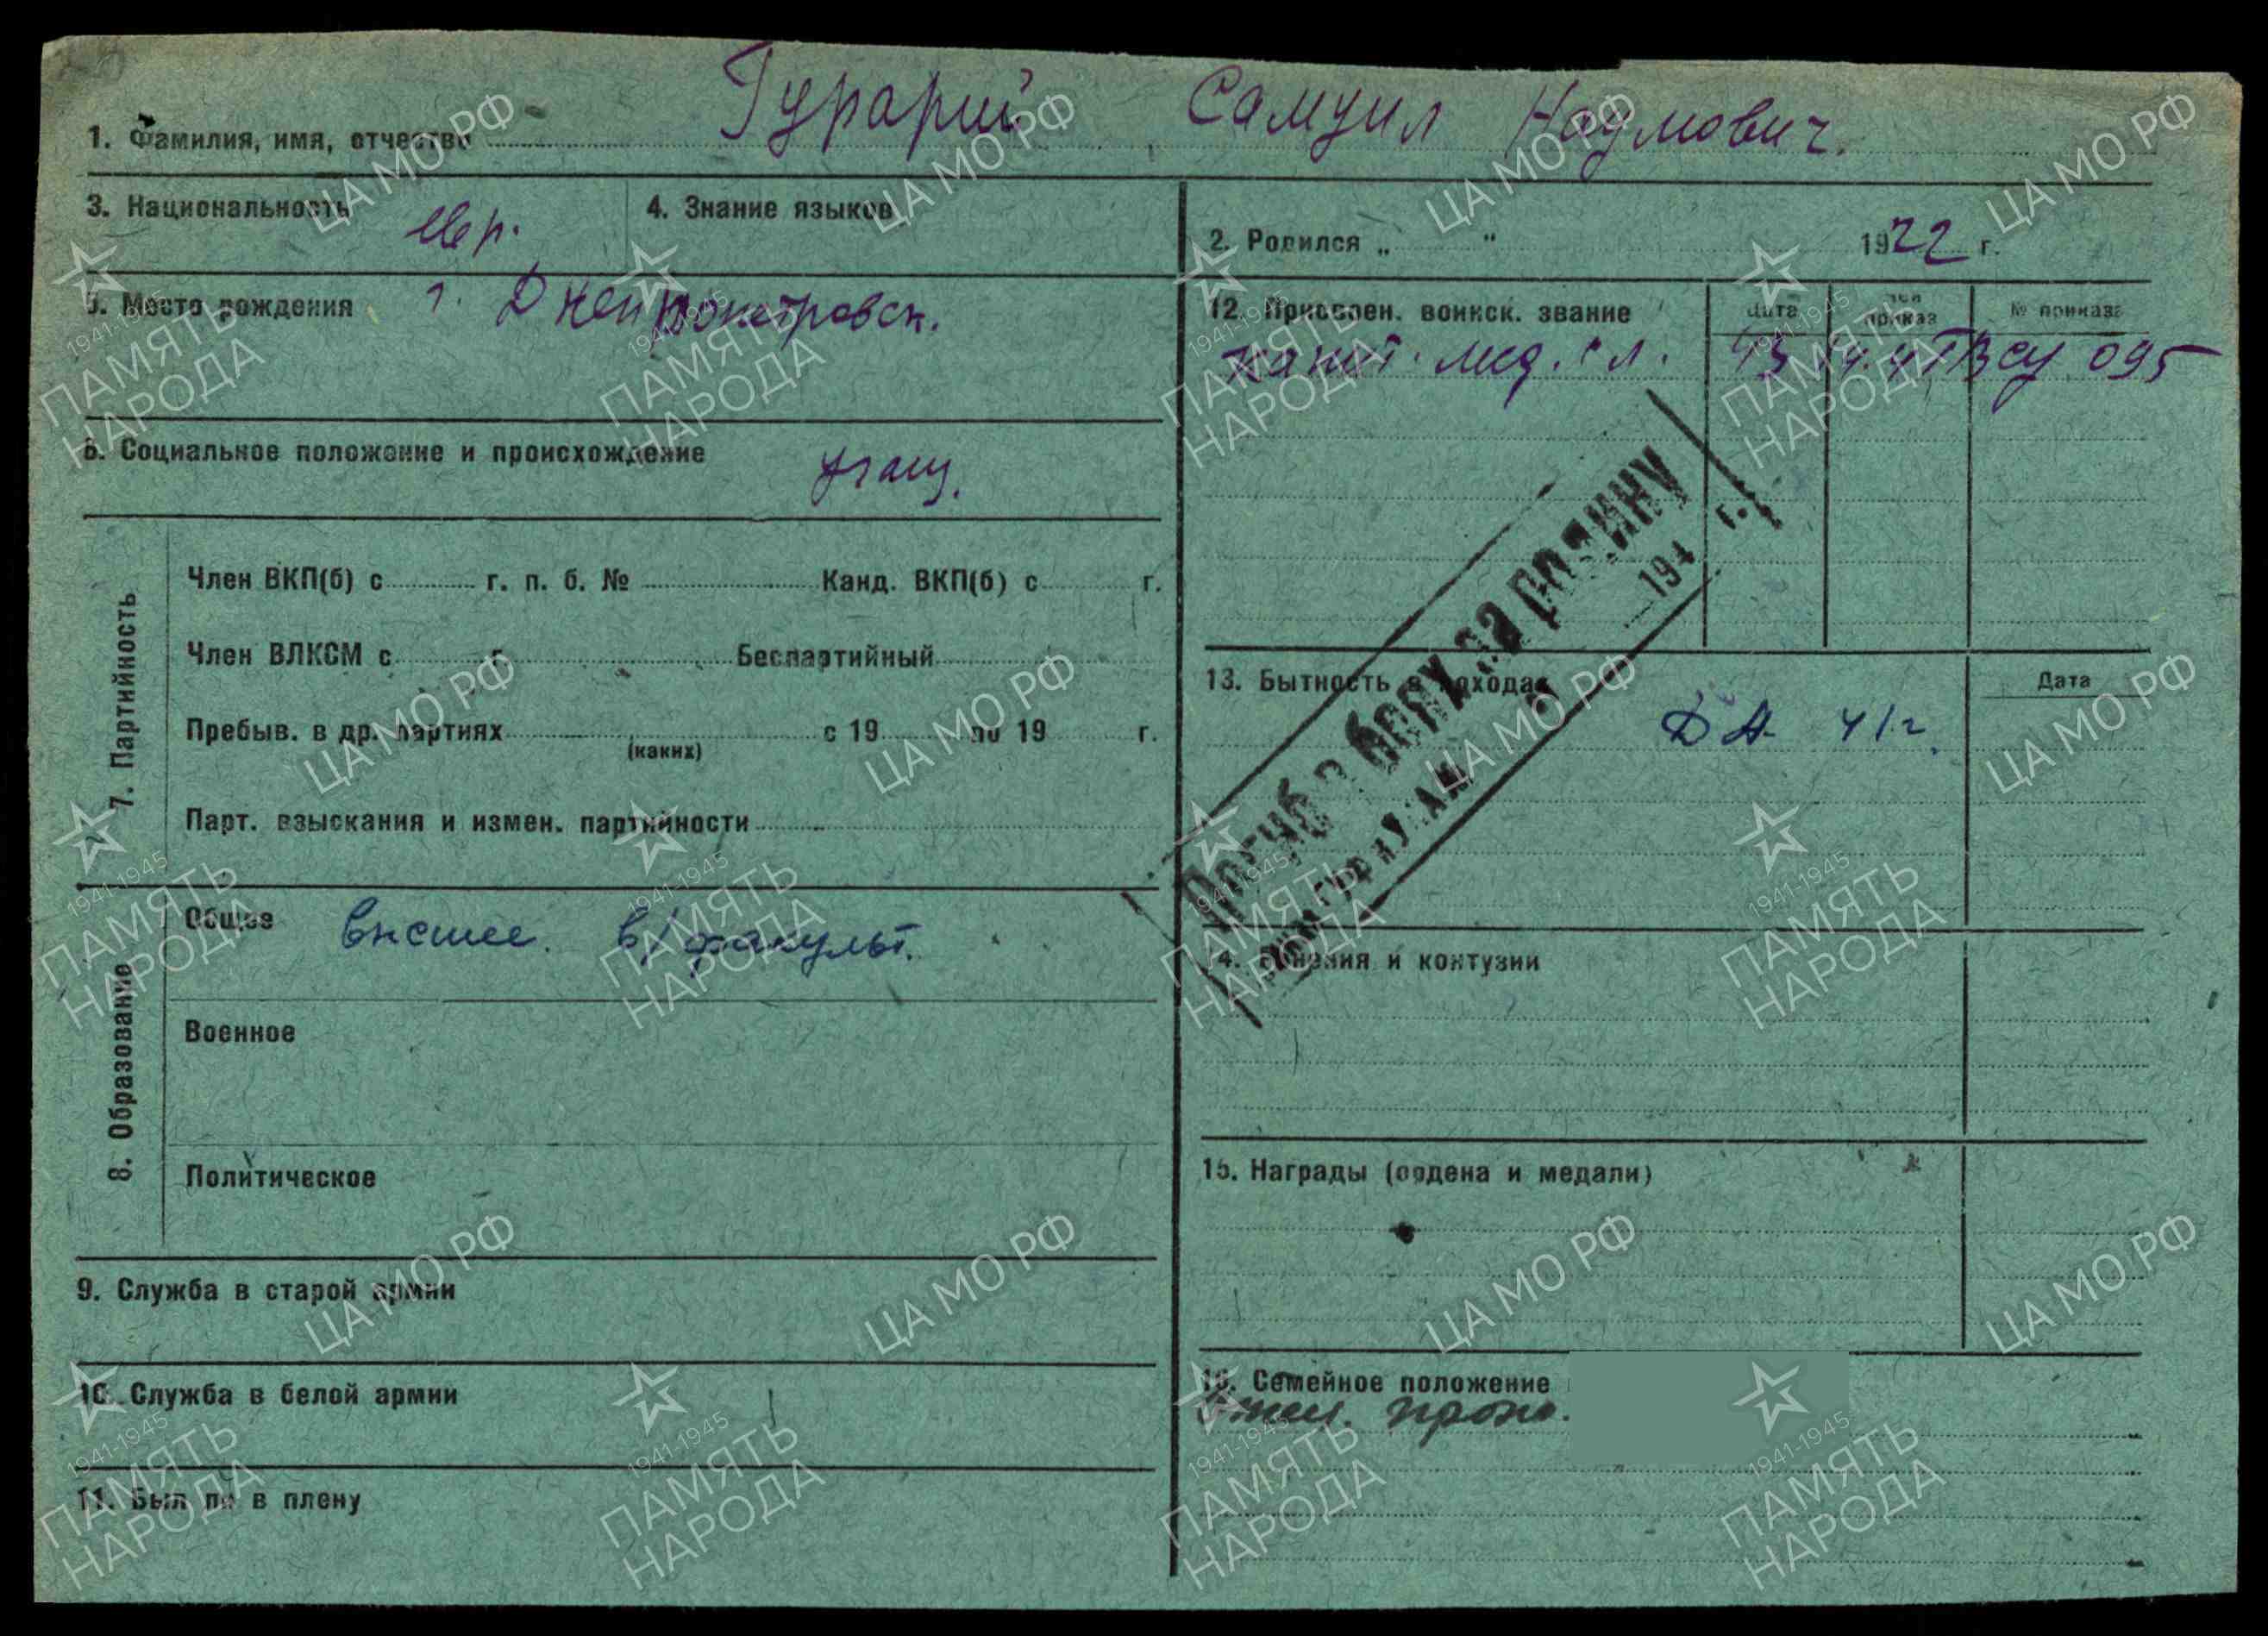 1. Фамилия, имя, отчество Гурарий Самуил Наумович.
3. Национальность евр.
4. Знание языков
2. Родился „ " 1922 г.
5. Место рождения г. Днепропетровск.
12. Присвоен. воинск. звание
Дата
приказ
№ приказа
капит. мед. сл. 43 095
6. Социальное положение и происхождение учащ.
7. Партийность
Член ВКП(б) с г. п. б. № Канд. ВКП(б) с г.
Член ВЛКСМ с г. Беспартийный
Пребыв. в др. партиях с 19 по 19 г.
(каких)
Парт. взыскания и измен. партийности
Погиб в борьбе за родину
194 г.
13. Бытность в походах
Дата
ДА 41 г.
8. Образование
Общее высшее. в/факульт.
Военное
Политическое
14. Ранения и контузии
15. Награды (ордена и медали)
9. Служба в старой армии
10. Служба в белой армии
11. Был ли в плену
16. Семейное положение
ЦА МО РФ
1941-1945
ПАМЯТЬ
НАРОДА